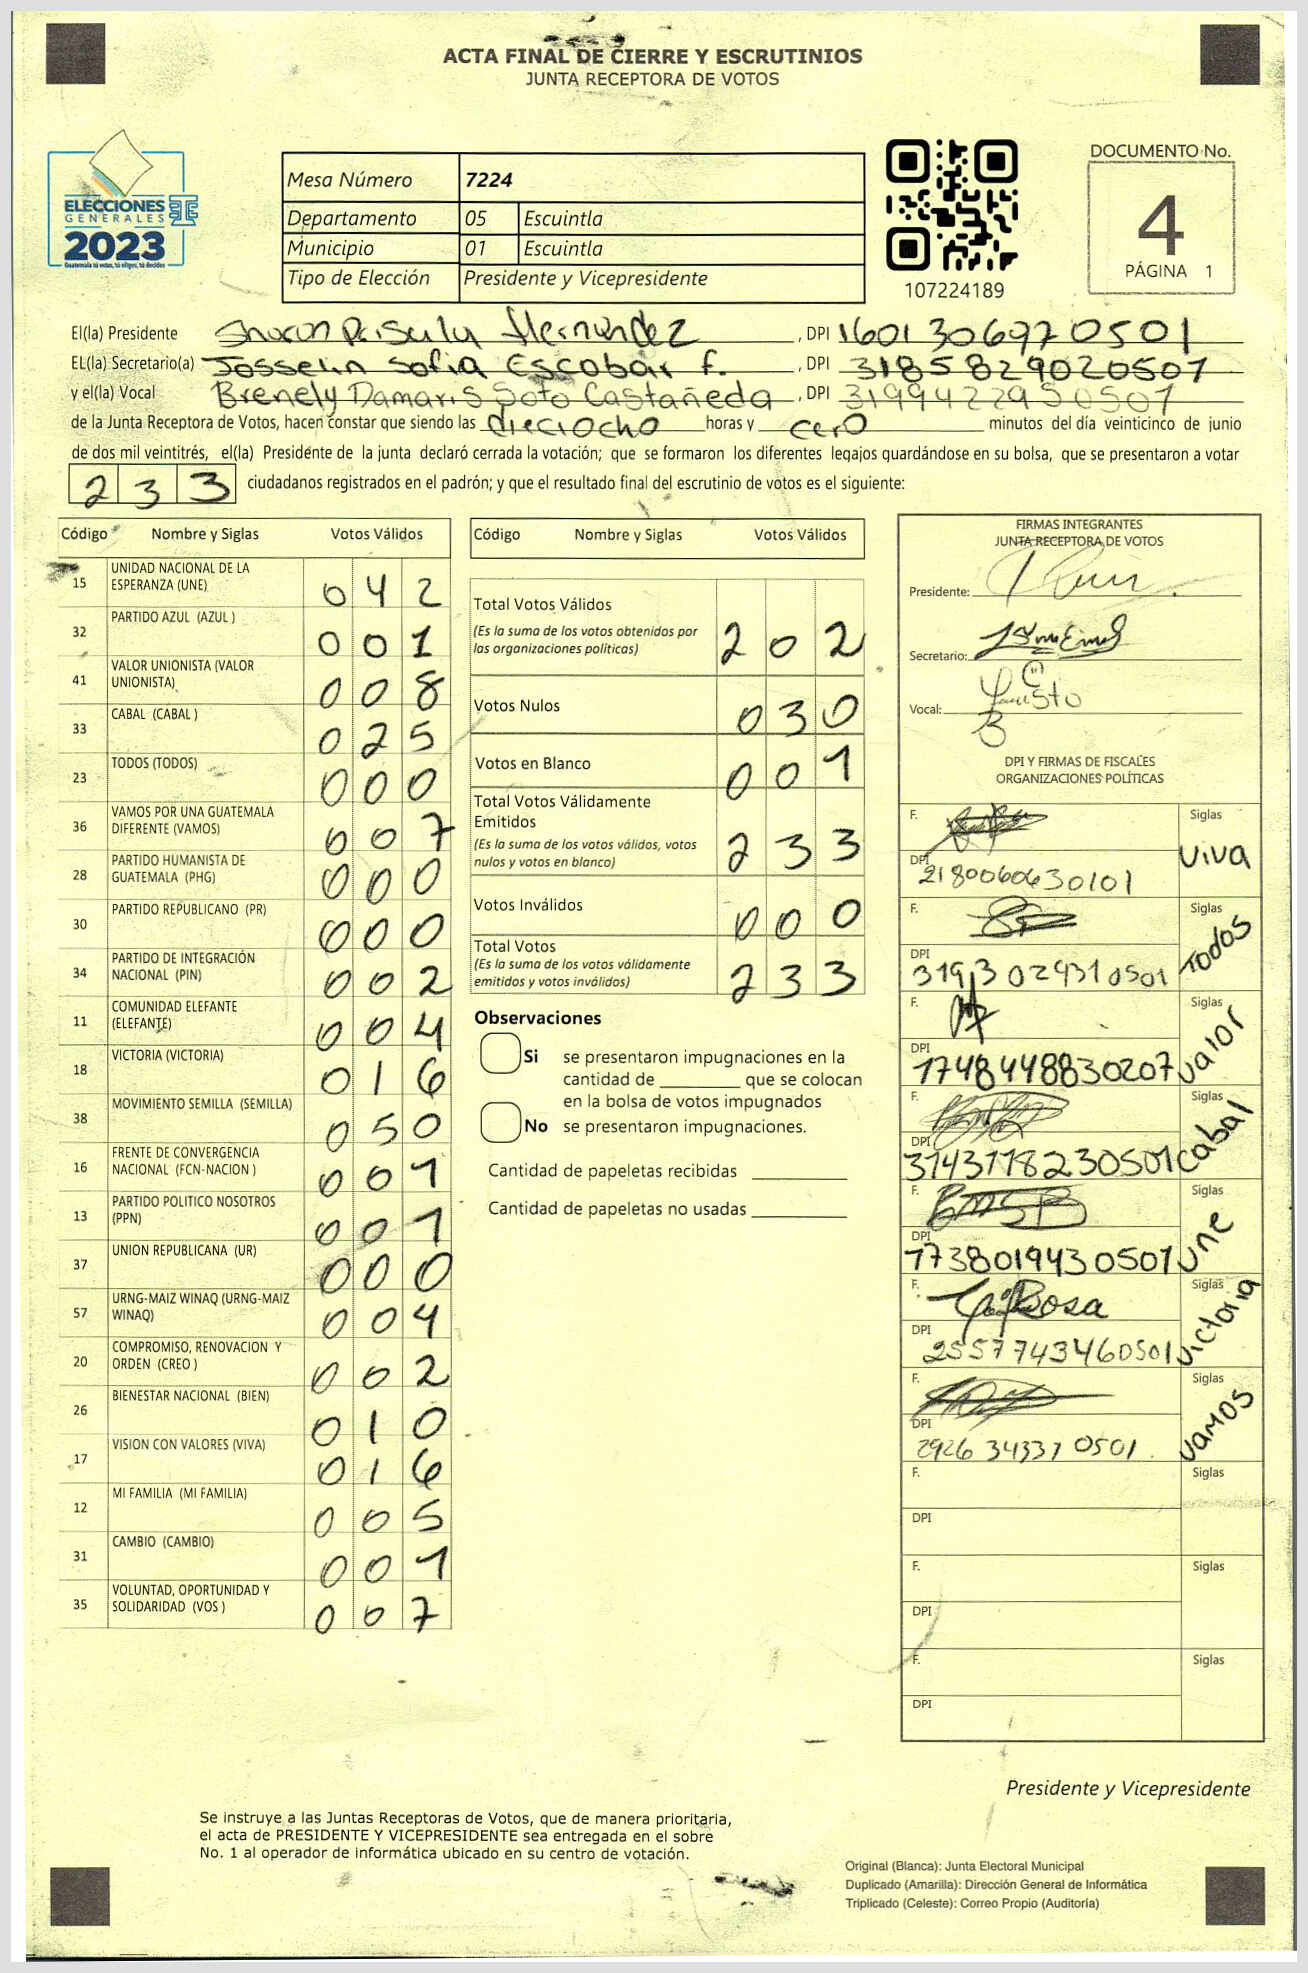 ACTA FINAL DE CIERRE Y ESCRUTINIOS
JUNTA RECEPTORA DE VOTOS
ELECCIONES
GENERALES
2023
Guatemala tú votas, tú eliges, tú decides
Mesa Número 7224
Departamento 05 Escuintla
Municipio 01 Escuintla
Tipo de Elección Presidente y Vicepresidente
107224189
DOCUMENTO No.
4
PÁGINA 1
El(la) Presidente Hernández , DPI 1601306970501
EL(la) Secretario(a) Josselin Sofia Escobar F. , DPI 3185829020507
y el(la) Vocal Brenely Damaris Soto Castañeda , DPI 3199422950501
de la Junta Receptora de Votos, hacen constar que siendo las dieciocho horas y cero minutos del día veinticinco de junio
de dos mil veintitrés, el(la) Presidente de la junta declaró cerrada la votación; que se formaron los diferentes legajos guardándose en su bolsa, que se presentaron a votar
233 ciudadanos registrados en el padrón; y que el resultado final del escrutinio de votos es el siguiente:
Código Nombre y Siglas Votos Válidos
15 UNIDAD NACIONAL DE LA ESPERANZA (UNE) 042
32 PARTIDO AZUL (AZUL ) 001
41 VALOR UNIONISTA (VALOR UNIONISTA) 008
33 CABAL (CABAL ) 025
23 TODOS (TODOS) 000
36 VAMOS POR UNA GUATEMALA DIFERENTE (VAMOS) 007
28 PARTIDO HUMANISTA DE GUATEMALA (PHG) 000
30 PARTIDO REPUBLICANO (PR) 000
34 PARTIDO DE INTEGRACIÓN NACIONAL (PIN) 002
11 COMUNIDAD ELEFANTE (ELEFANTE) 004
18 VICTORIA (VICTORIA) 016
38 MOVIMIENTO SEMILLA (SEMILLA) 050
16 FRENTE DE CONVERGENCIA NACIONAL (FCN-NACION ) 001
13 PARTIDO POLITICO NOSOTROS (PPN) 001
37 UNION REPUBLICANA (UR) 000
57 URNG-MAIZ WINAQ (URNG-MAIZ WINAQ) 004
20 COMPROMISO, RENOVACION Y ORDEN (CREO ) 002
26 BIENESTAR NACIONAL (BIEN) 010
17 VISION CON VALORES (VIVA) 016
12 MI FAMILIA (MI FAMILIA) 005
31 CAMBIO (CAMBIO) 001
35 VOLUNTAD, OPORTUNIDAD Y SOLIDARIDAD (VOS ) 007
Código Nombre y Siglas Votos Válidos
Total Votos Válidos 202
(Es la suma de los votos obtenidos por
las organizaciones políticas)
Votos Nulos 030
Votos en Blanco 001
Total Votos Válidamente
Emitidos 233
(Es la suma de los votos válidos, votos
nulos y votos en blanco)
Votos Inválidos 000
Total Votos 233
(Es la suma de los votos válidamente
emitidos y votos inválidos)
Observaciones
Si se presentaron impugnaciones en la
cantidad de ________ que se colocan
en la bolsa de votos impugnados
No se presentaron impugnaciones.
Cantidad de papeletas recibidas
Cantidad de papeletas no usadas
FIRMAS INTEGRANTES
JUNTA RECEPTORA DE VOTOS
Presidente:
Secretario:
Vocal:
DPI Y FIRMAS DE FISCALES
ORGANIZACIONES POLÍTICAS
F. Siglas
DPI 2180060630101 Viva
F. Siglas
DPI 31913024310501 Todos
F. Siglas
DPI 1748448830207 Valor
F. Siglas
DPI 3143118230501 Cabal
F. Siglas
DPI 1738019430501 Une
F. Siglas
DPI 2557743460501 Victoria
F. Siglas
DPI 2926343370501 Vamos
F. Siglas
DPI
F. Siglas
DPI
F. Siglas
DPI
Presidente y Vicepresidente
Se instruye a las Juntas Receptoras de Votos, que de manera prioritaria,
el acta de PRESIDENTE Y VICEPRESIDENTE sea entregada en el sobre
No. 1 al operador de informática ubicado en su centro de votación.
Original (Blanca): Junta Electoral Municipal
Duplicado (Amarilla): Dirección General de Informática
Triplicado (Celeste): Correo Propio (Auditoría)